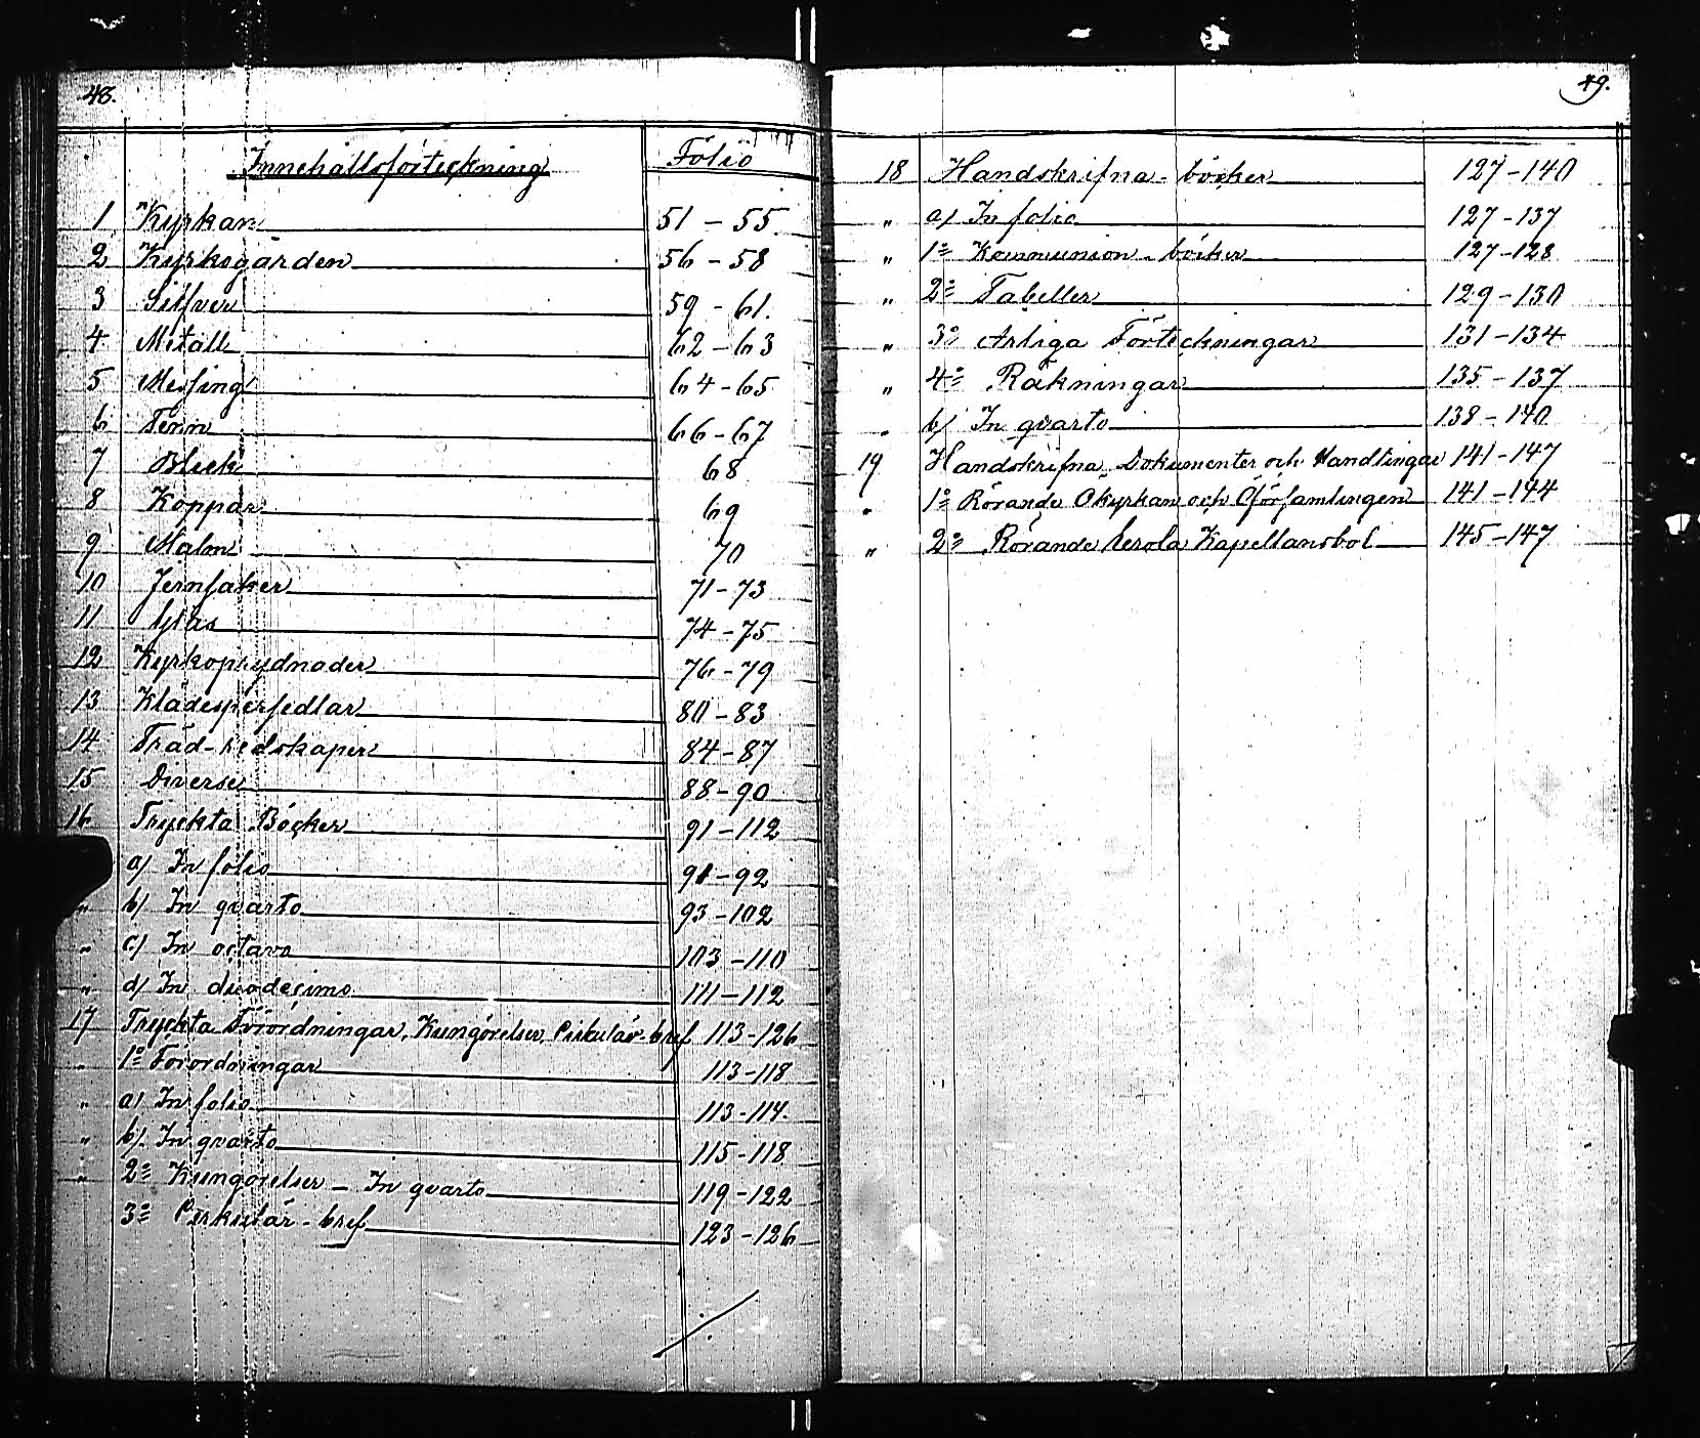 48.
Innehållsförteckning Folio
1 Kyrkan 51-55
2 Kyrkogården 56-58
3 Silfver 59-61.
4 Metall 62-63
5 Messing 64-65
6 Tenn 66-67
7 Bleck 68
8 Koppar 69
9 Malm 70
10 Jernsaker 71-73
11 Glas 74-75
12 Kyrkoprydnader 76-79
13 Klädespersedlar 80-83
14 Träd-redskaper 84-87
15 Diverse 88-90
16 Tryckta Böcker 91-112
a) In folio 91-92
" b) In qvarto 93-102
" c) In octavo 103-110
" d) In duodecimo 111-112
17 Tryckta Förordningar, Kungörelser, Cirkulär-bref 113-126
" 1o Förordningar 113-118
" a) In folio 113-114.
" b) In qvarto 115-118
" 2o Kungörelser - In qvarto 119-122
3o Cirkulär-bref 123-126
49.
18 Handskrifna-böcker 127-140
" a) In folio 127-137
" 1o Kommunion-böcker 127-128
" 2o Tabeller 129-130
" 3o Årliga Förteckningar 131-134
" 4o Räkningar 135-137
" b) In qvarto 138-140
19 Handskrifna Dokumenter och Handlingar 141-147
" 1o Rörande Kyrkan och Församlingen 141-144
" 2o Rörande Kapellansbol 145-147